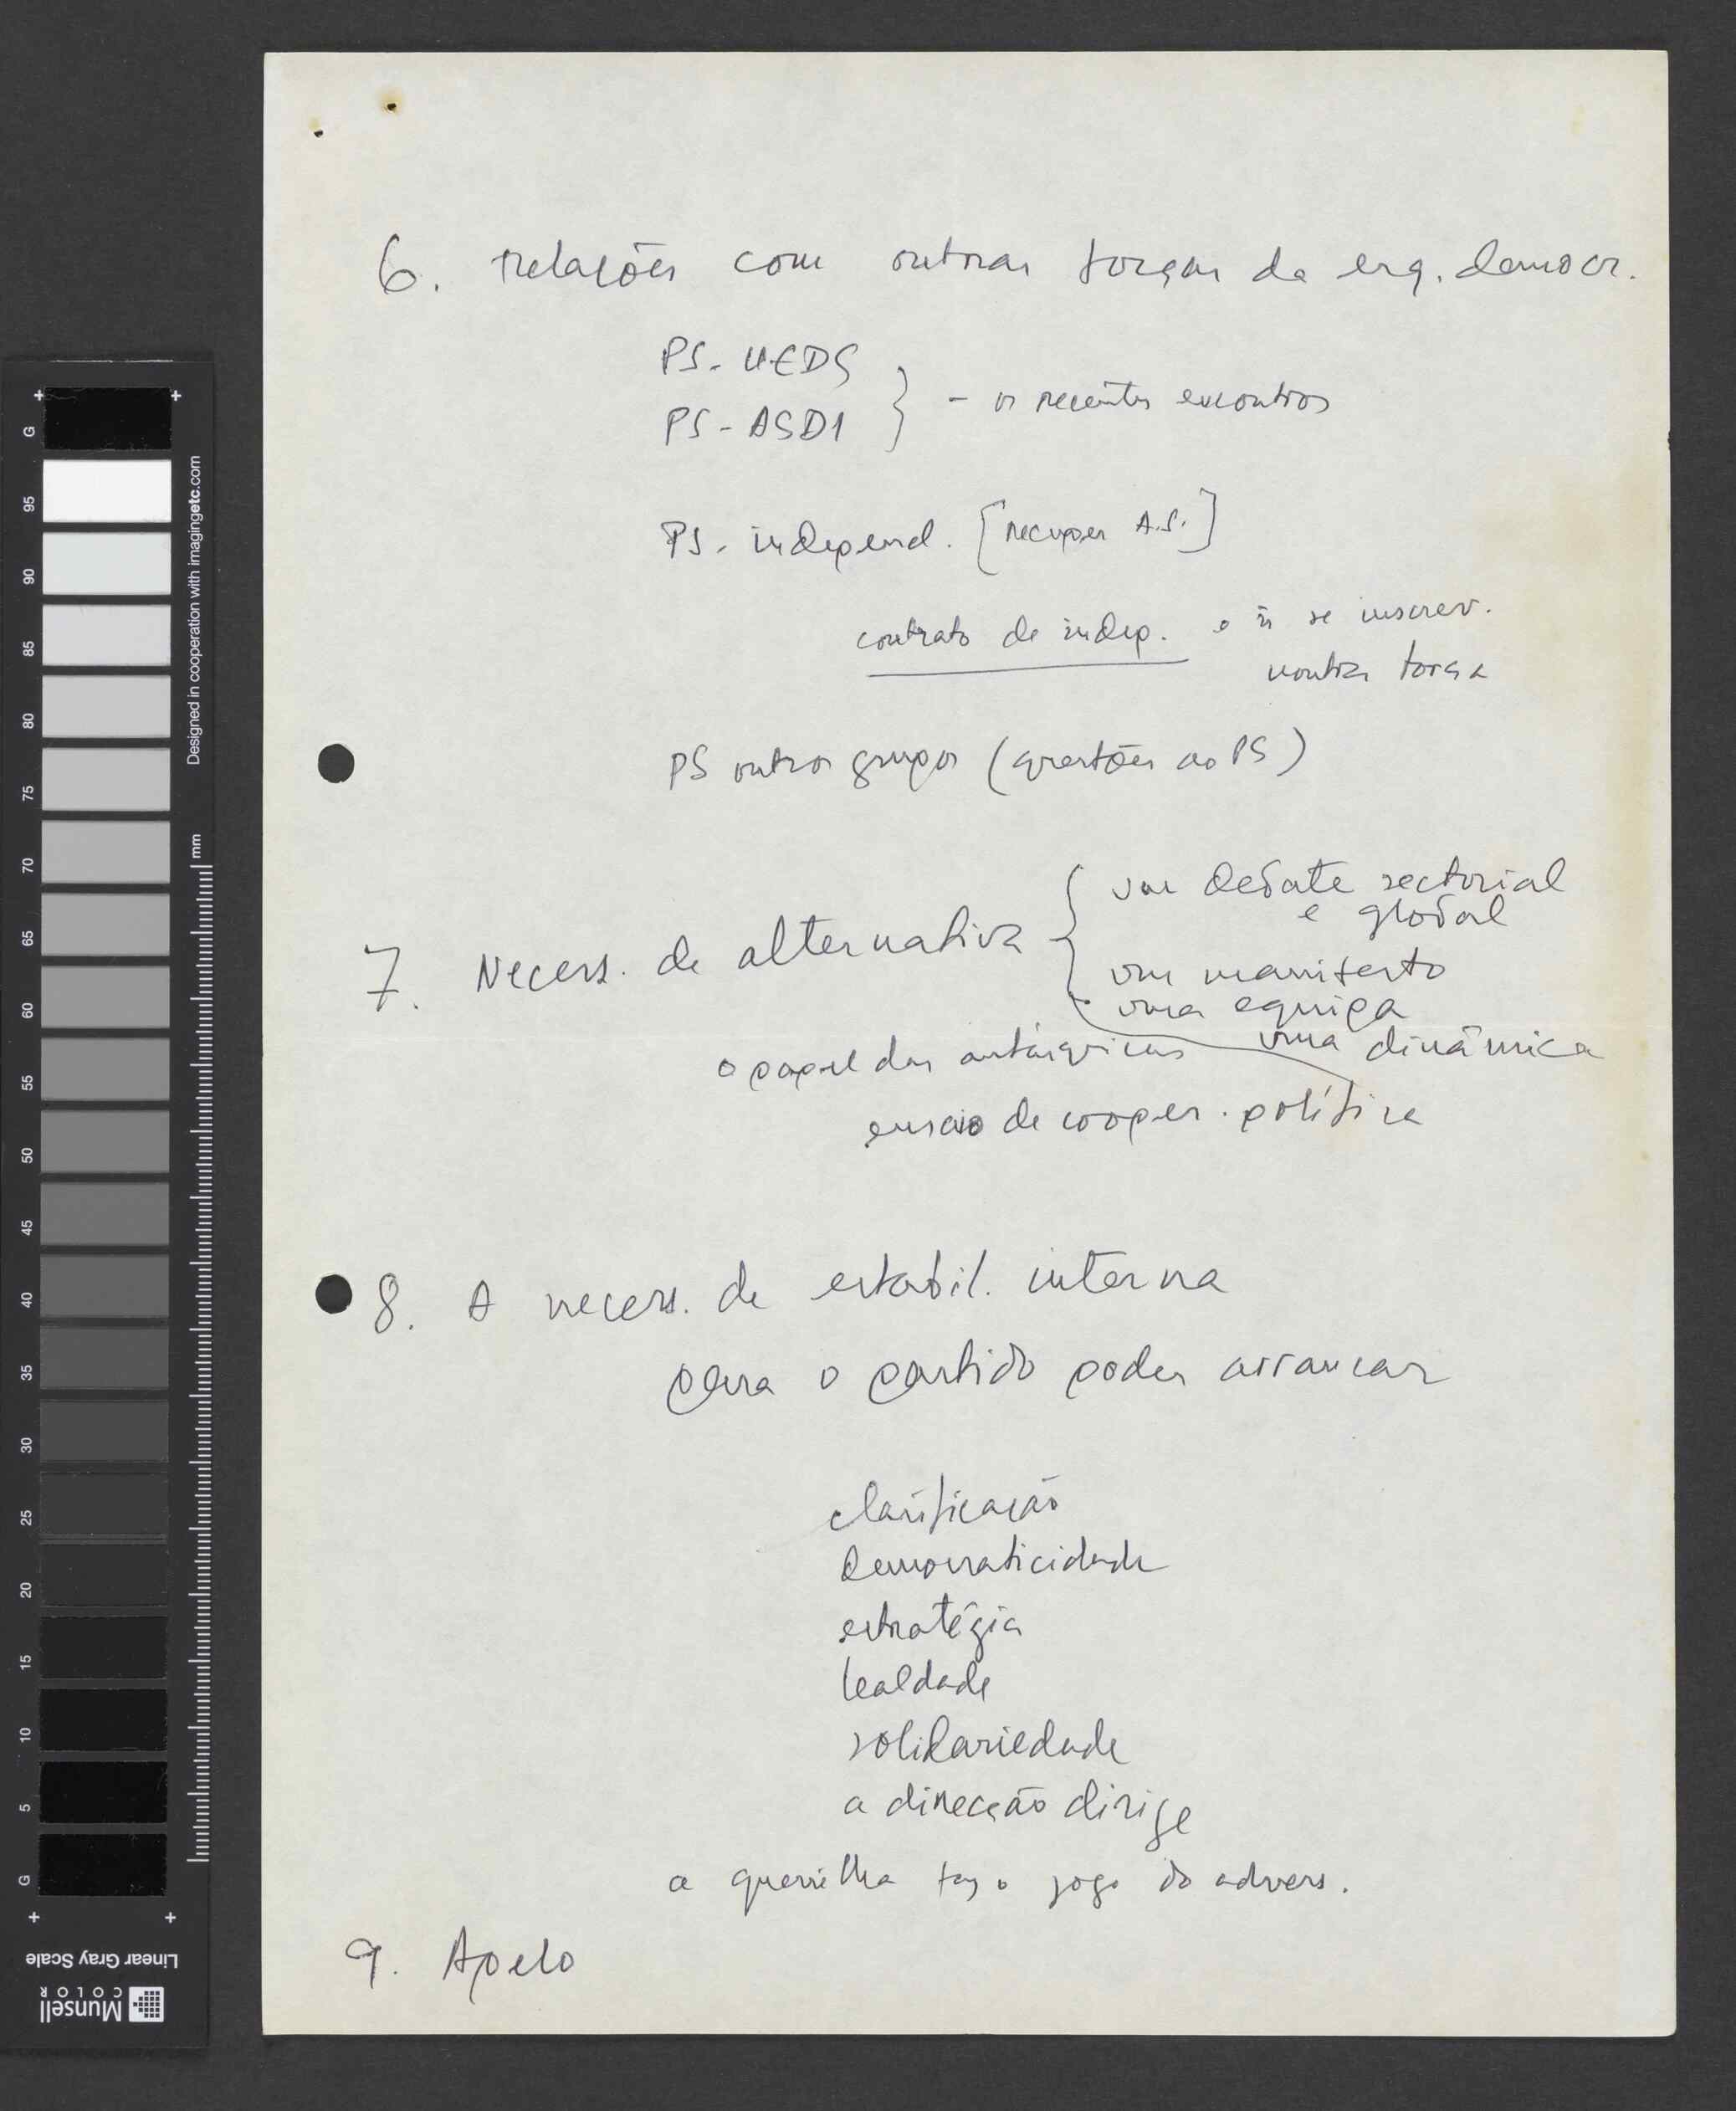 6. relações com outras forças da esq. democr.
PS - UEDS
PS - ASDI } - os recentes encontros
PS - independ. [recuper A.S.]
contrato de indep. e ñ se inscrev.
noutra força
PS outros grupos (questões ao PS)
7. Necess. de alternativa { um debate sectorial
e global
um manifesto
uma equipa
uma dinâmica
o papel das autárquicas
ensaio de cooper. política
8. A necess. de estabil. interna
para o partido poder arrancar
clarificação
democraticidade
estratégia
lealdade
solidariedade
a direcção dirige
a guerrilha faz o jogo do advers.
9. Apelo
G 95 90 85 80 75 70 65 60 55 50 45 40 35 30 25 20 15 10 5 G
Designed in cooperation with imagingetc.com
mm
Linear Gray Scale
Munsell
COLOR